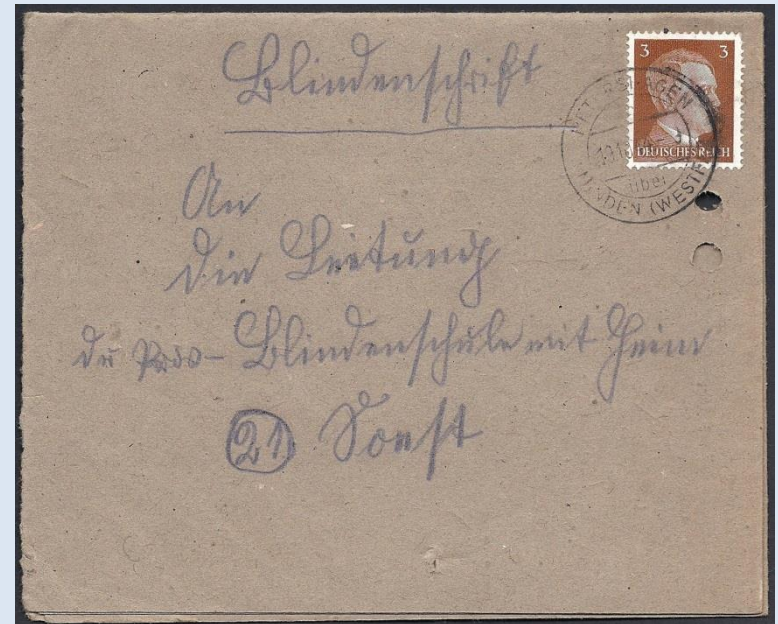 Blindenschrift
3 3
DEUTSCHES REICH
PETERSHAGEN
über
MINDEN (WESTF)
An
die Leitung
der Prov- Blindenschule mit Heim
21 Soest